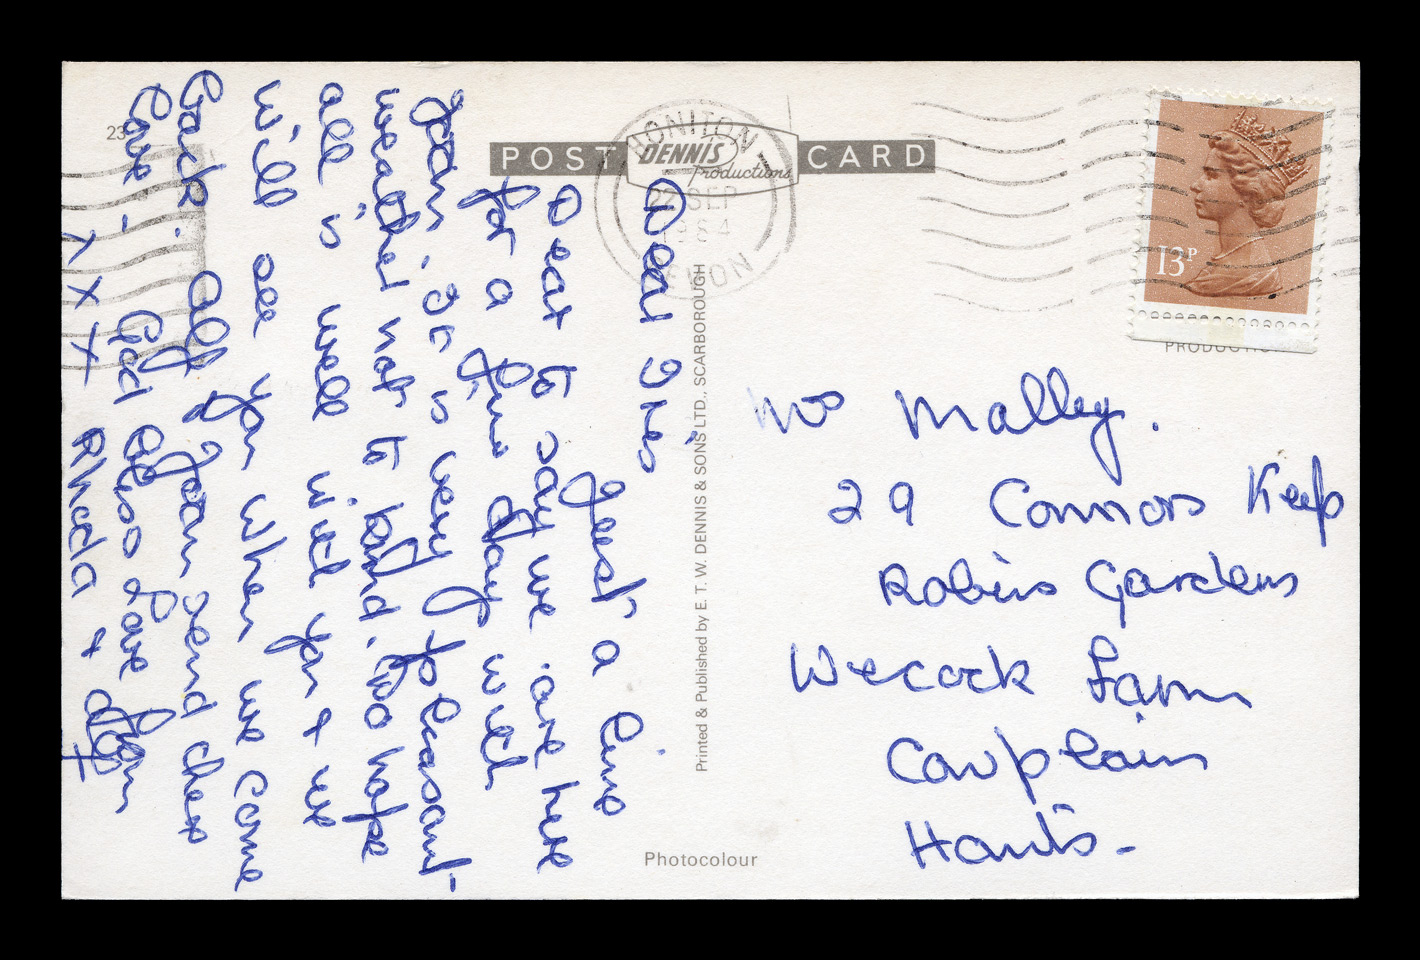 23
POST CARD
DENNIS
Productions
HONITON
22 SEP
1984
DEVON
13P
PRODUCTION
Dear Iris
Just a line
Dear to say we are here
for a fine day with
Joan. It is very pleasant
weather not to kind, too hope
all is well with you & we
will see you when we come
back. Alf & Joan send their
Love - God Bless Love from
X X X Rhoda &
Printed & Published by E. T. W. DENNIS & SONS LTD., SCARBOROUGH
Photocolour
Mrs Malley.
29 Connors Keep
Robins Gardens
Wecock Farm
Cowplain
Hants-